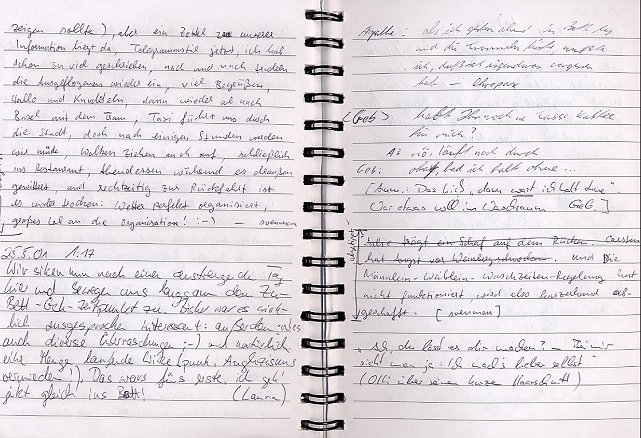 zeigen sollte), aber ein Zettel zu unserer
Information liegt da, Telegrammstil jetzt, ich hab
schon zu viel geschrieben, nach und nach trudeln
die Ausgeflogenen wieder ein, viel Begrüßen,
Hallo und Knuddeln, dann wieder ab nach
Basel mit dem Tram, Taxi führt uns durch
die Stadt, doch nach einigen Stunden werden
wir müde, Wolken ziehen auch auf, schließlich
ins Restaurant, Abendessen während es draußen
gewittert, und rechtzeitig zur Rückfahrt ist
es wieder trocken: Wetter perfekt organisiert,
großes Lob an die Organisation! :-) svenman
25.5.01 1:17
Wir sitzen nun nach einem anstrengende Tag
hier und bewegen uns langsam dem Zu-
Bett-Geh-Zeitpunkt zu. Bisher war es wirk-
lich ausgesprochen interessant: außerdem
auch diverse Überraschungen ;-) und natürlich
eine Menge laufende Witze (puuh, Anglizismus
vermieden!). Das wars fürs erste, ich geh'
jetzt gleich ins Bett! (Laura)
Agathe: als ich gestern abend im Bett lag
und die
ich, daß ich irgendetwas vergessen
hab – Ohropax
(Geb) habt Ihr noch ne Tasse Kaffee
für mich?
A: nö, läuft noch durch
Geb: och, had ich halt ohne...
[Anm.: Das hieß „dann wart ich halt ohne".
War etwas voll im Waschraum Geb.]
abstrust
Jahre trägt ein Schaf auf dem Rücken. Carsten
hat Angst vor Weinbergschnecken. und Die
Männlein-Weiblein-Waschzeiten-Regelung hat
nicht funktioniert, wird also kurzerhand ab-
geschafft. [svenman]
„Ach, du lässt es dir machen? – Bei mir
sieht man ja: Ich mach's lieber selbst"
(Olli über seinen kurzen Haarschnitt)